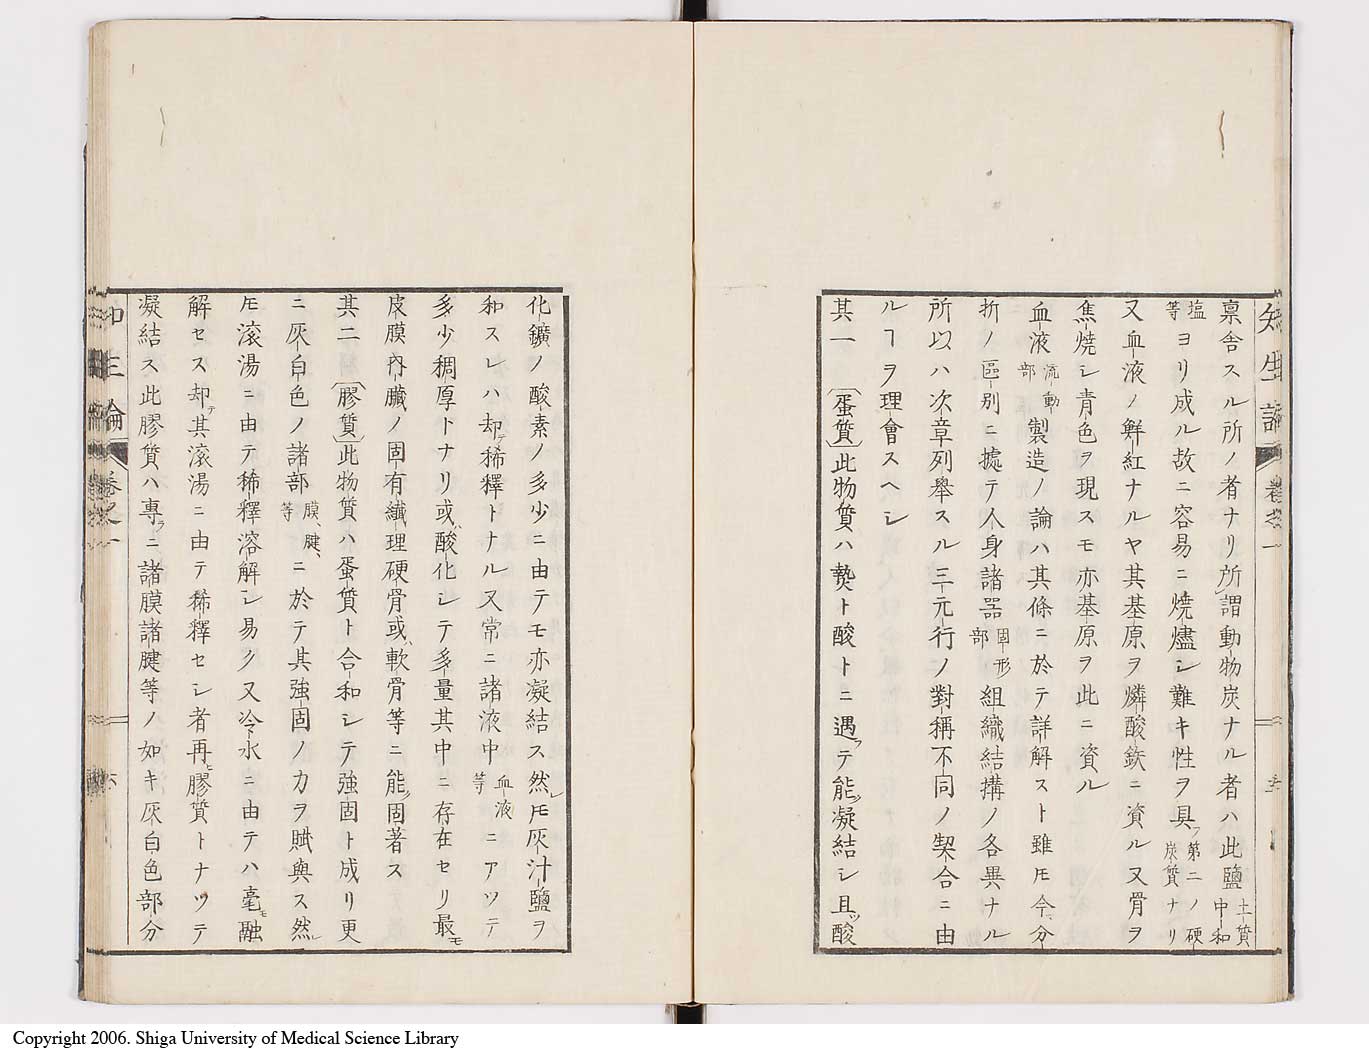 稟舎スル所ノ者ナリ所謂動物炭ナル者ハ此鹽土質中和
塩等ヨリ成ル故ニ容易ニ焼燼シ難キ性ヲ具フ第二ノ硬炭質ナリ
又血液ノ鮮紅ナルヤ其基原ヲ燐酸鉄ニ資ル又骨ヲ
焦焼シ青色ヲ現スモ亦基原ヲ此ニ資ル
血液流動部製造ノ論ハ其條ニ於テ詳解スト雖𪜈今分
折ノ區別ニ據テ人身諸器固形部組織結搆ノ各異ナル
所以ハ次章列舉スル三元行ノ對稱不同ノ契合ニ由
ルヿヲ理會スヘシ
其一〔蛋質〕此物質ハ熱ト酸トニ遇フテ能ク凝結シ且ツ酸
化鑛ノ酸素ノ多少ニ由テモ亦凝結ス然レ𪜈灰汁鹽ヲ
和スレハ却テ稀釋トナル又常ニ諸液中血液等ニアツテ
多少稠厚トナリ或ハ酸化シテ多量其中ニ存在セリ最モ
皮膜內臟ノ固有纎理硬骨或ハ軟骨等ニ能ク固著ス
其二〔膠質〕此物質ハ蛋質ト合和シテ強固ト成リ更
ニ灰白色ノ諸部膜、腱、等ニ於テ其強固ノ力ヲ賦與ス然レ
𪜈滚湯ニ由テ稀釋溶解シ易ク又冷水ニ由テハ毫モ融
解セス却テ其滚湯ニ由テ稀釋セシ者再モ膠質トナツテ
凝結ス此膠質ハ專ラニ諸膜諸腱等ノ如キ灰白色部分
知生論
卷之一
五
知生論
卷之一
六
Copyright 2006. Shiga University of Medical Science Library